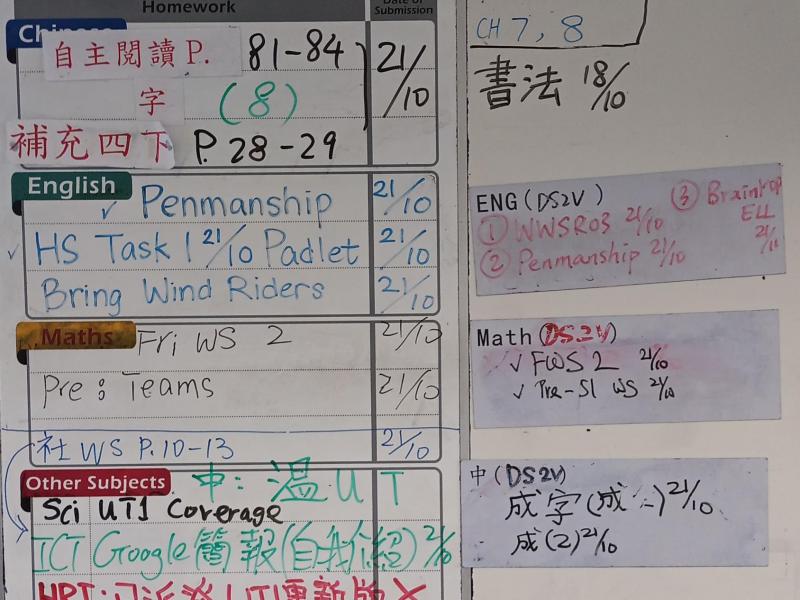 Homework
Date of Submission
Chinese
自主閱讀 P. 81-84 21/10
字 (8)
補充四下 P. 28-29
English
✓ Penmanship 21/10
✓ HS Task 1 21/10 Padlet 21/10
Bring Wind Riders 21/10
Maths
Fri WS 2 21/10
Pre: Teams 21/10
社 WS P. 10-13 21/10
Other Subjects
中: 溫 UT
Sci UT1 Coverage
ICT Google 簡報(自我介紹) 21/10
CH 7, 8
書法 18/10
ENG (DS2V)
① WWSR03 21/10
② Penmanship 21/10
③ Braintrop
ELL
21/11
Math (DS2V)
✓ FWS 2 21/10
✓ Pre-S1 WS 21/10
中 (DS2V)
成字(成二) 21/10
成(2) 21/10